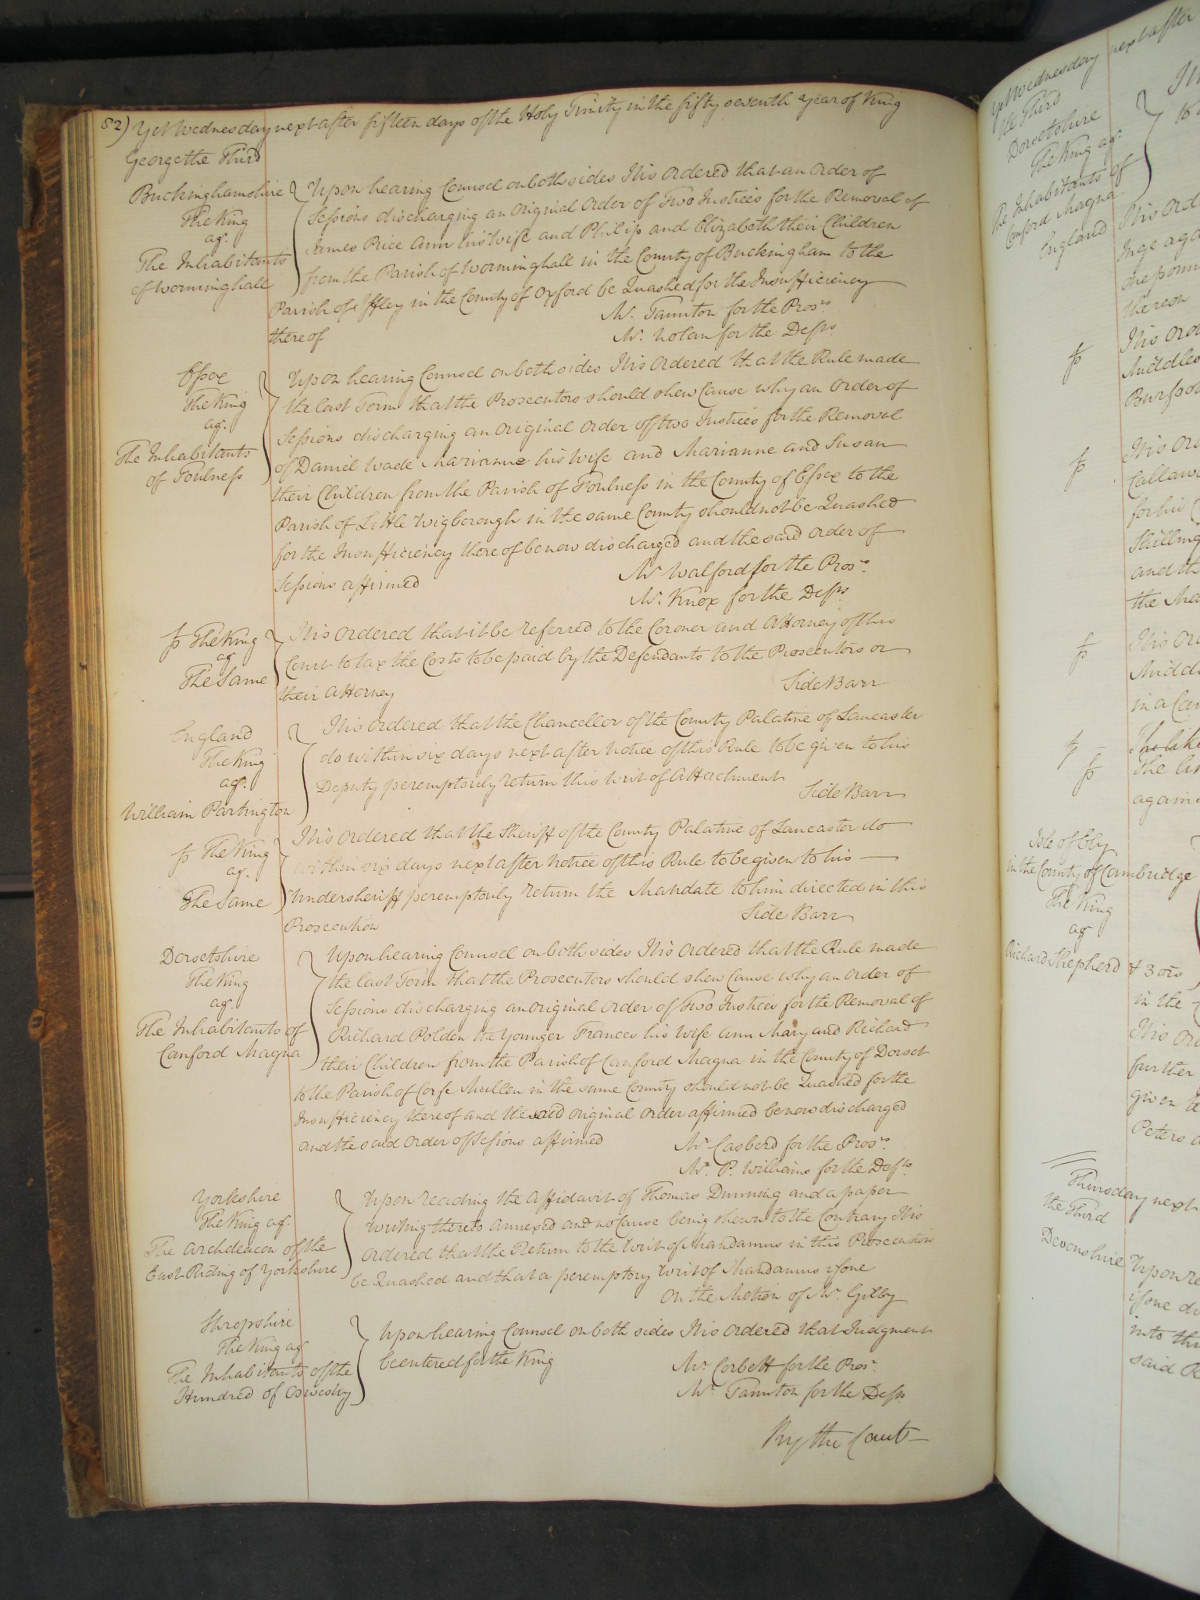 82) Yet Wednesday next after fifteen days of the Holy Trinity in the fifty seventh year of King
George the Third
Buckinghamshire
The King
agt.
The Inhabitants
of Worminghall
Upon hearing Counsel on both sides It is Ordered that an Order of
Sessions discharging an Original Order of Two Justices for the Removal of
James Price Ann his wife and Philip and Elizabeth their Children
from the Parish of Worminghall in the County of Buckingham to the
Parish of Iffley in the County of Oxford be Quashed for the Insufficiency
thereof
Mr. Taunton for the Pros.rs
Mr. Nolan for the Defts
Essex
The King
agt.
The Inhabitants
of Foulness
Upon hearing Counsel on both sides It is Ordered that the Rule made
the last Term that the Prosecutors should shew Cause why an Order of
Sessions discharging an Original Order of two Justices for the Removal
of Daniel Wade Marianne his wife and Marianne and Susan
their Children from the Parish of Foulness in the County of Essex to the
Parish of Little Wigborough in the same County should not be Quashed
for the Insufficiency thereof be now discharged and the said Order of
Sessions affirmed
Mr. Walford for the Pros.rs
Mr. Knox for the Defts
The King
agt
The Same
It is Ordered that it be referred to the Coroner and Attorney of this
Court to tax the Costs to be paid by the Defendants to the Prosecutors or
their Attorney
Side Barr
England
The King
agt.
William Partington
It is Ordered that the Chancellor of the County Palatine of Lancaster
do within six days next after notice of this Rule to be given to his
Deputy peremptorily return this Writ of Attachment
Side Barr
The King
agt.
The Same
It is Ordered that the Sheriff of the County Palatine of Lancaster do
within six days next after notice of this Rule to be given to his
Undersheriff peremptorily return the Mandate to him directed in this
Prosecution
Side Barr
Dorsetshire
The King
agt.
The Inhabitants of
Canford Magna
Upon hearing Counsel on both sides It is Ordered that the Rule made
the last Term that the Prosecutors should shew Cause why an Order of
Sessions discharging an Original Order of Two Justices for the Removal of
Richard Polden the Younger Frances his wife Ann Mary and Richard
their Children from the Parish of Canford Magna in the County of Dorset
to the Parish of Corfe Mullen in the same County should not be Quashed for the
Insufficiency thereof and the said Original Order affirmed be now discharged
and the said Order of Sessions affirmed
Mr. Casberd for the Pros.rs
Mr. P. Williams for the Defts
Yorkshire
The King agt.
The Archdeacon of the
East Riding of Yorkshire
Upon reading the Affidavit of Thomas Dunning and a paper
Writing thereto annexed and no Cause being shewn to the Contrary It is
Ordered that the Return to the Writ of Mandamus in this Prosecution
be Quashed and that a peremptory Writ of Mandamus issue
On the Motion of Mr. Gilby
Shropshire
The King agt
The Inhabitants of the
Hundred of Oswestry
Upon hearing Counsel on both sides It is Ordered that Judgment
be entered for the King
Mr. Corbett for the Pros.
Mr. Taunton for the Defts
By the Court
Yet Wednesday next after
the Third
Dorsetshire
The King agt.
The Inhabitants of
Canford Magna
England
It is Ord
thereon
It is Ord
Middles
It is Or
and th
It is Or
Midd
in a
The like
again
Isle of Ely
in the County of Cambridge
The King
agt
Richard Shepherd & 3 ors
in the
It is Or
further
given
Peters
Thursday next
the Third
Devonshire
Upon re
into th
said R